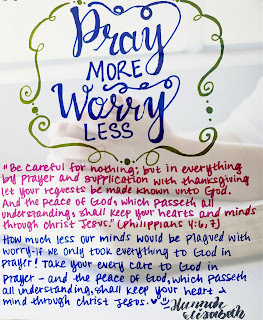 Pray
MORE
Worry
LESS
"Be careful for nothing; but in everything
by prayer and supplication with thanksgiving
let your requests be made known unto God.
And the peace of God, which passeth all
understanding, shall keep your hearts and minds
through Christ Jesus." (Philippians 4:6,7)
How much less our minds would be plagued with
worry-if we only took everything to God in
prayer! Take your every care to God in
prayer - and the peace of God, which passeth
all understanding, shall keep your heart &
mind through Christ Jesus. ♥
-Hannah
Elizabeth